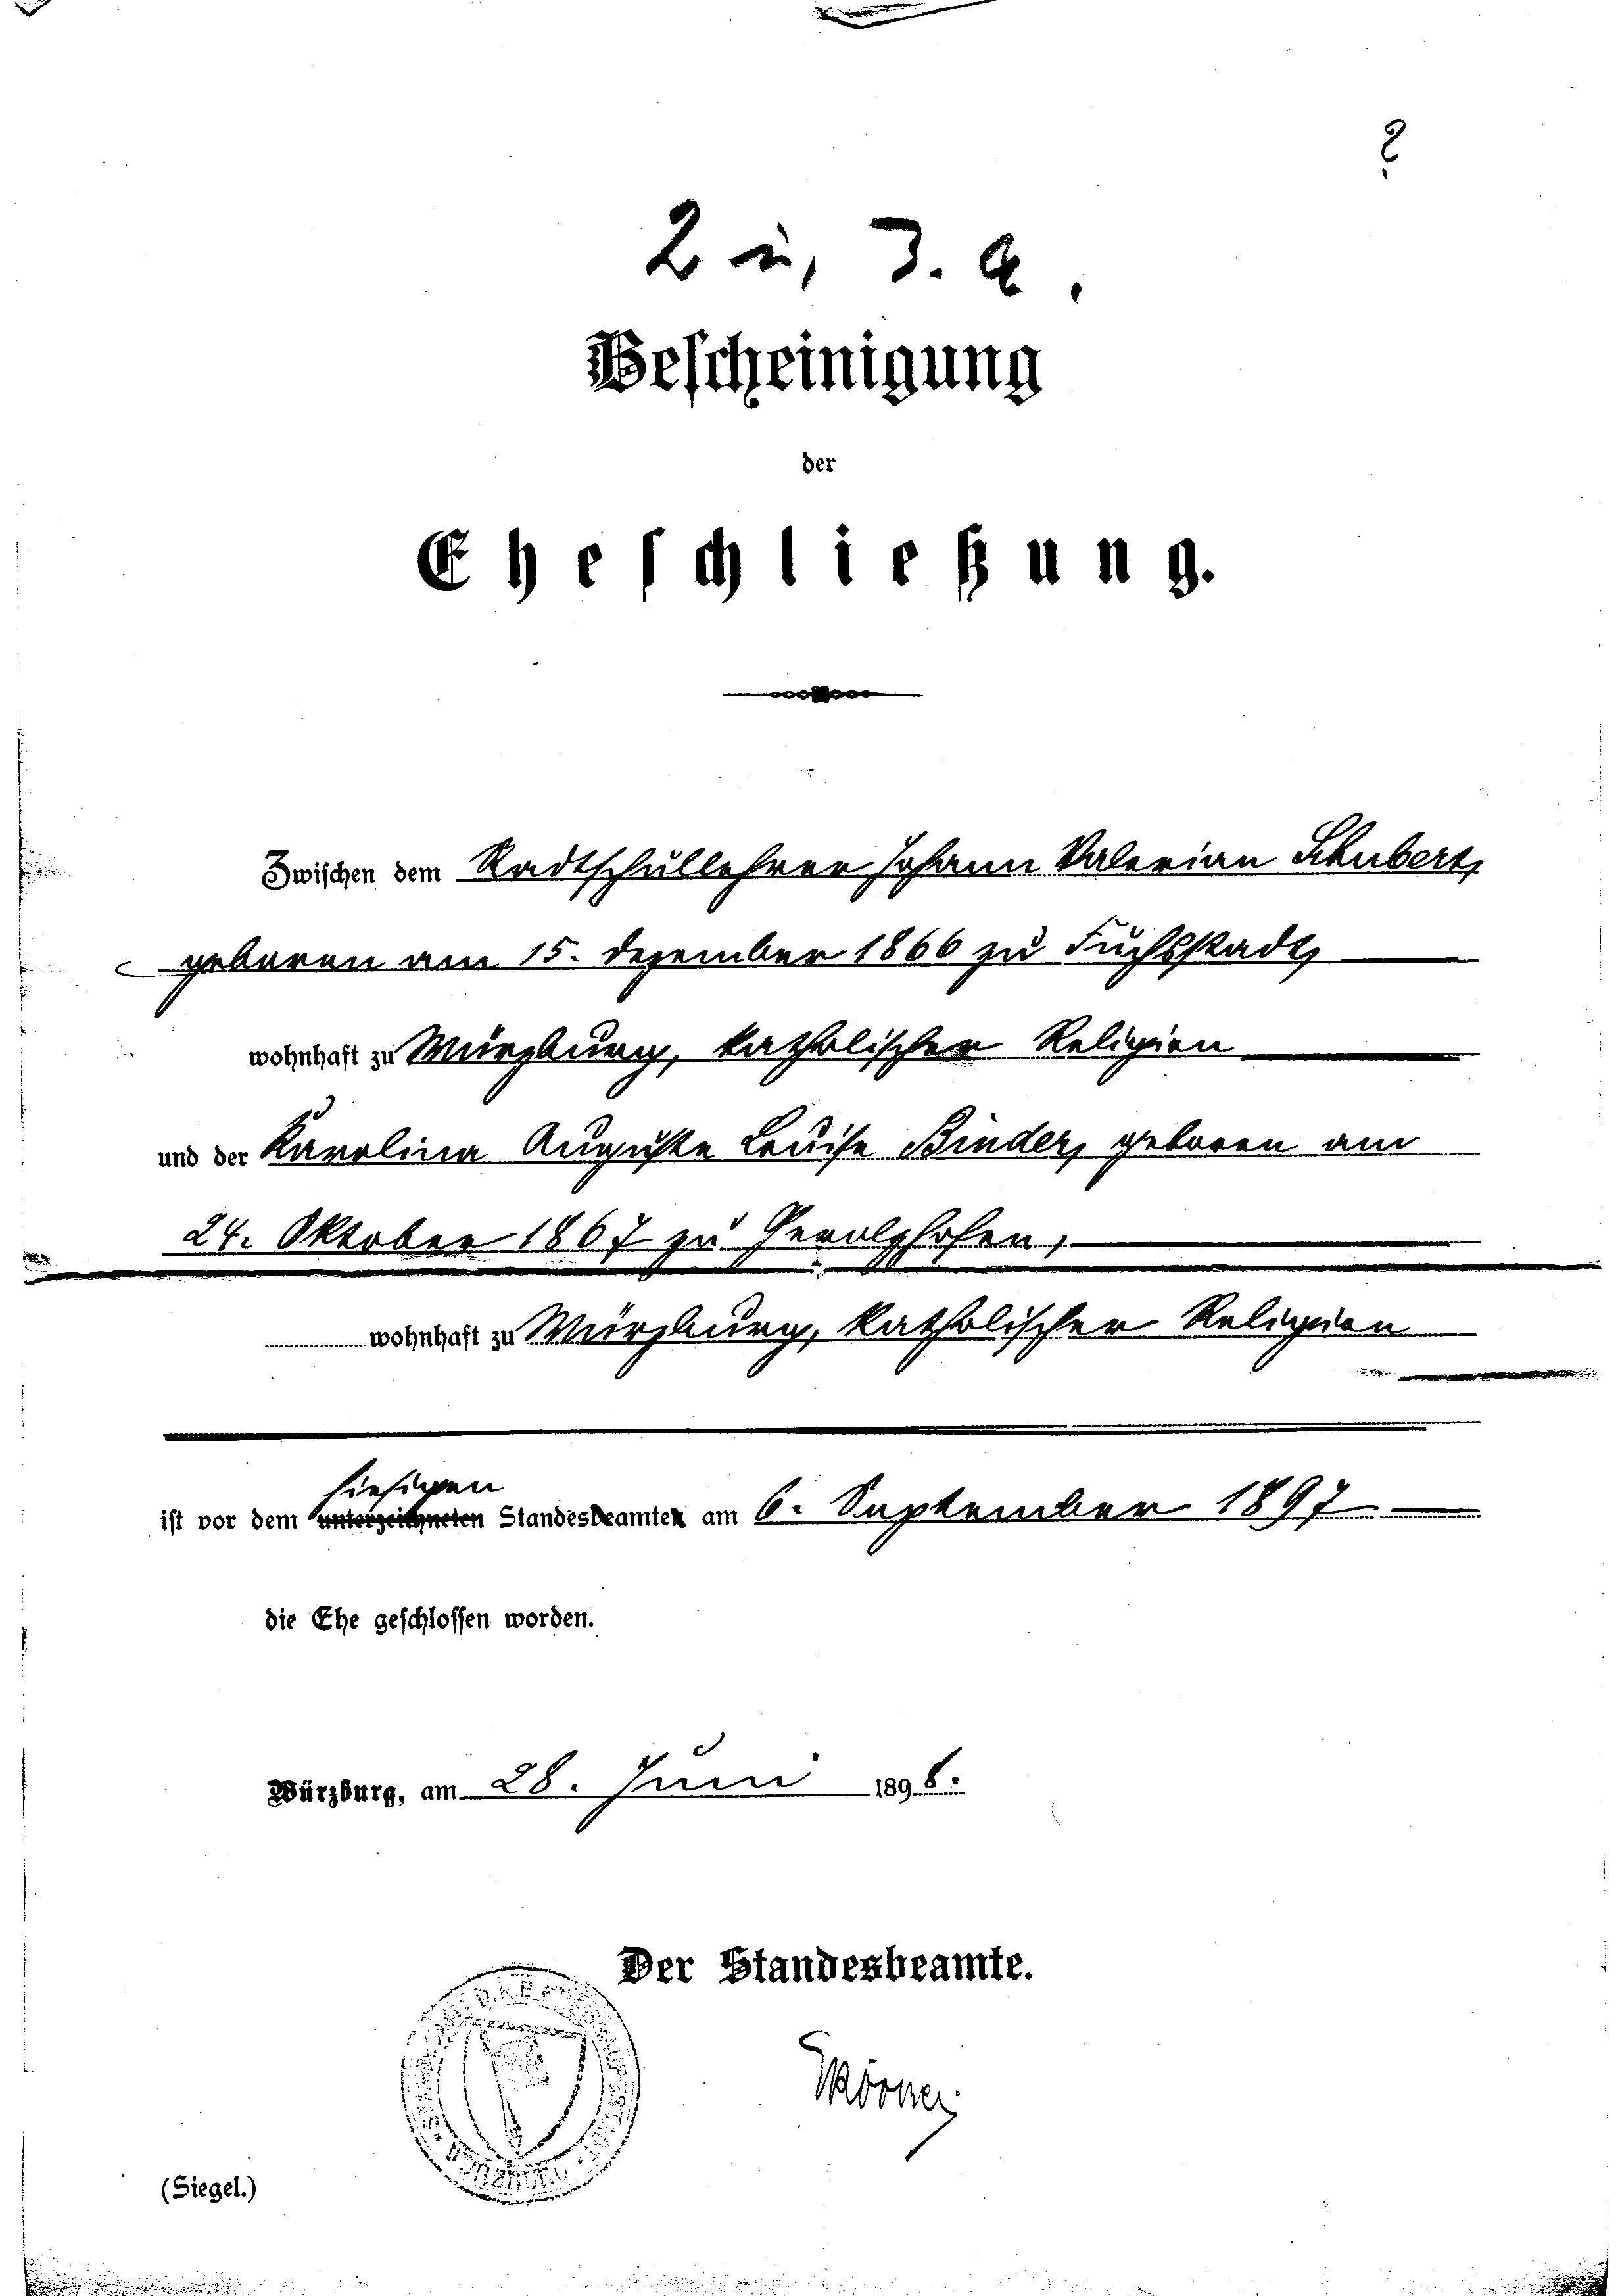 ?
2 u, 3. a.
Bescheinigung
der
Eheschließung.
Zwischen dem Stadtschullehrer Johann Valerian Schubert,
geboren am 15. Dezember 1866 zu Fuchsstadt,
wohnhaft zu Würzburg, katholischer Religion
und der Karolina Auguste Louise Binder, geboren am
24. Oktober 1867 zu Gerolzhofen,
wohnhaft zu Würzburg, katholischer Religion
hiesigen
ist vor dem unterzeichneten Standesbeamten am 6. September 1897
die Ehe geschlossen worden.
Würzburg, am 28. Juni 1898.
Der Standesbeamte.
(Siegel.)